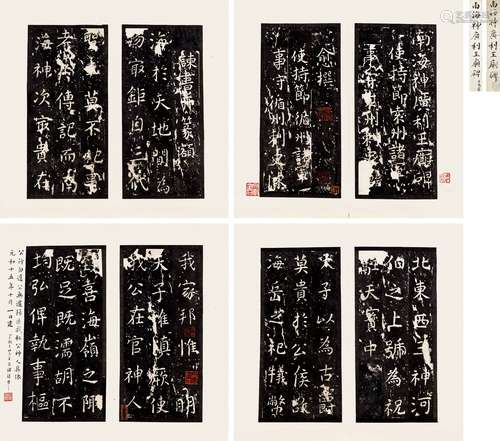 南海神廣利王廟碑
南海神廣利王廟碑
南海神廣利王廟碑
使持節袁州諸軍
事守袁州刺史
愈撰
使持節循州諸軍
事守循州刺史陳
諫書并篆額
海於天地間為
物最鉅自三代
聖王莫不祀事
考於傳記而南
海神次最貴在
北東西三神河
伯之上號為祝
融天寶中
天子以為古爵
莫貴於公侯故
海岳之祀犧幣
我家邦惟明
天子惟慎厥使
我公在官神人
致喜海嶺之陬
既足既濡胡不
均弘俾執事樞
公行勿遲公無遽歸匪我私公神人具依
元和十五年十月一日建